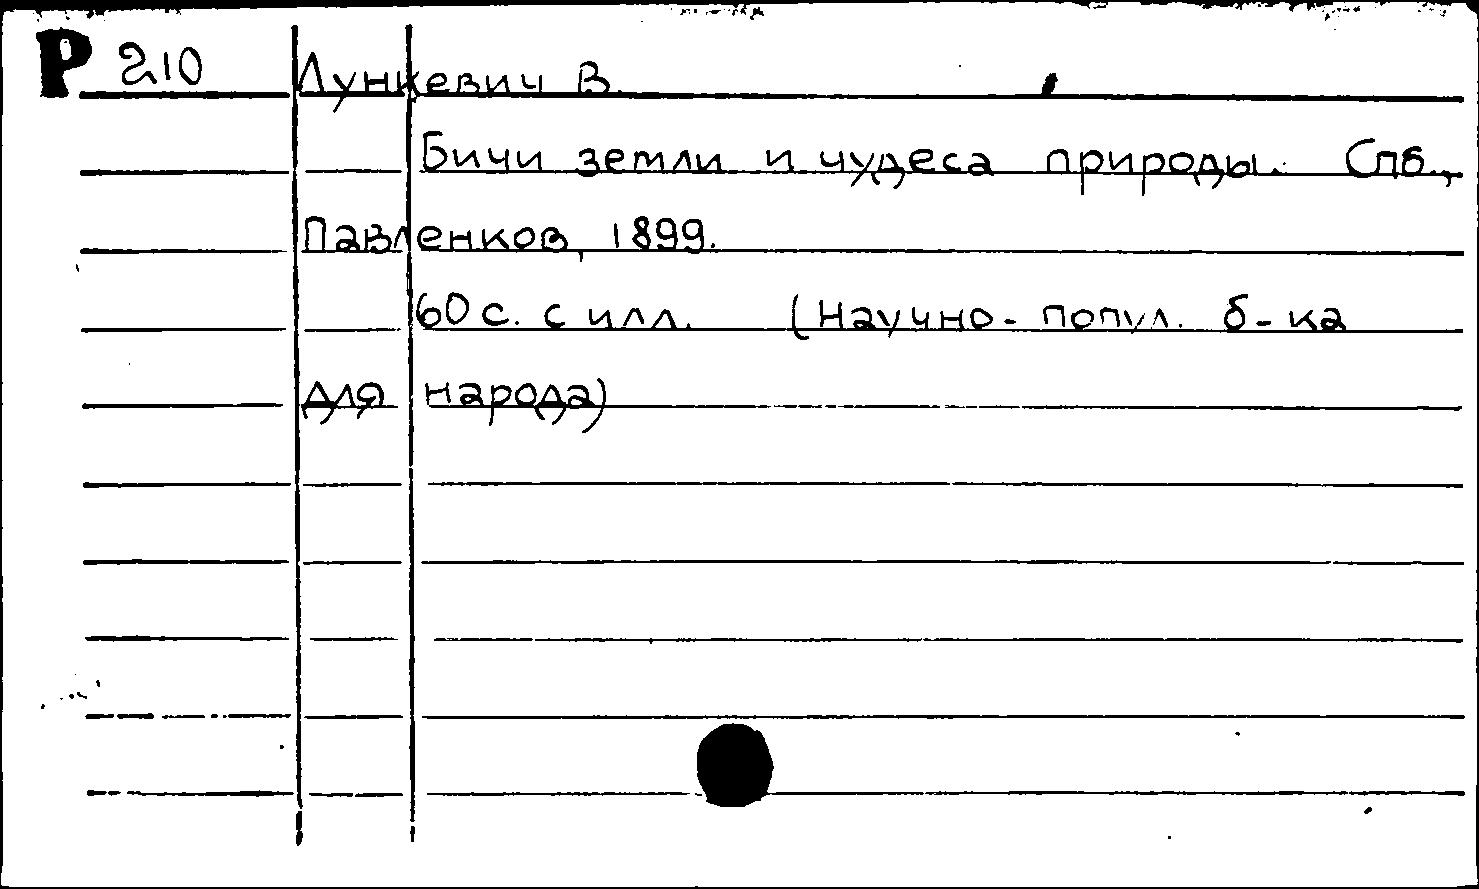 Р 210 Лункевич В.
Бичи земли и чудеса природы. Спб.,
Павленков, 1899.
60 с. с илл. (Научно-попул. б-ка
для народа)